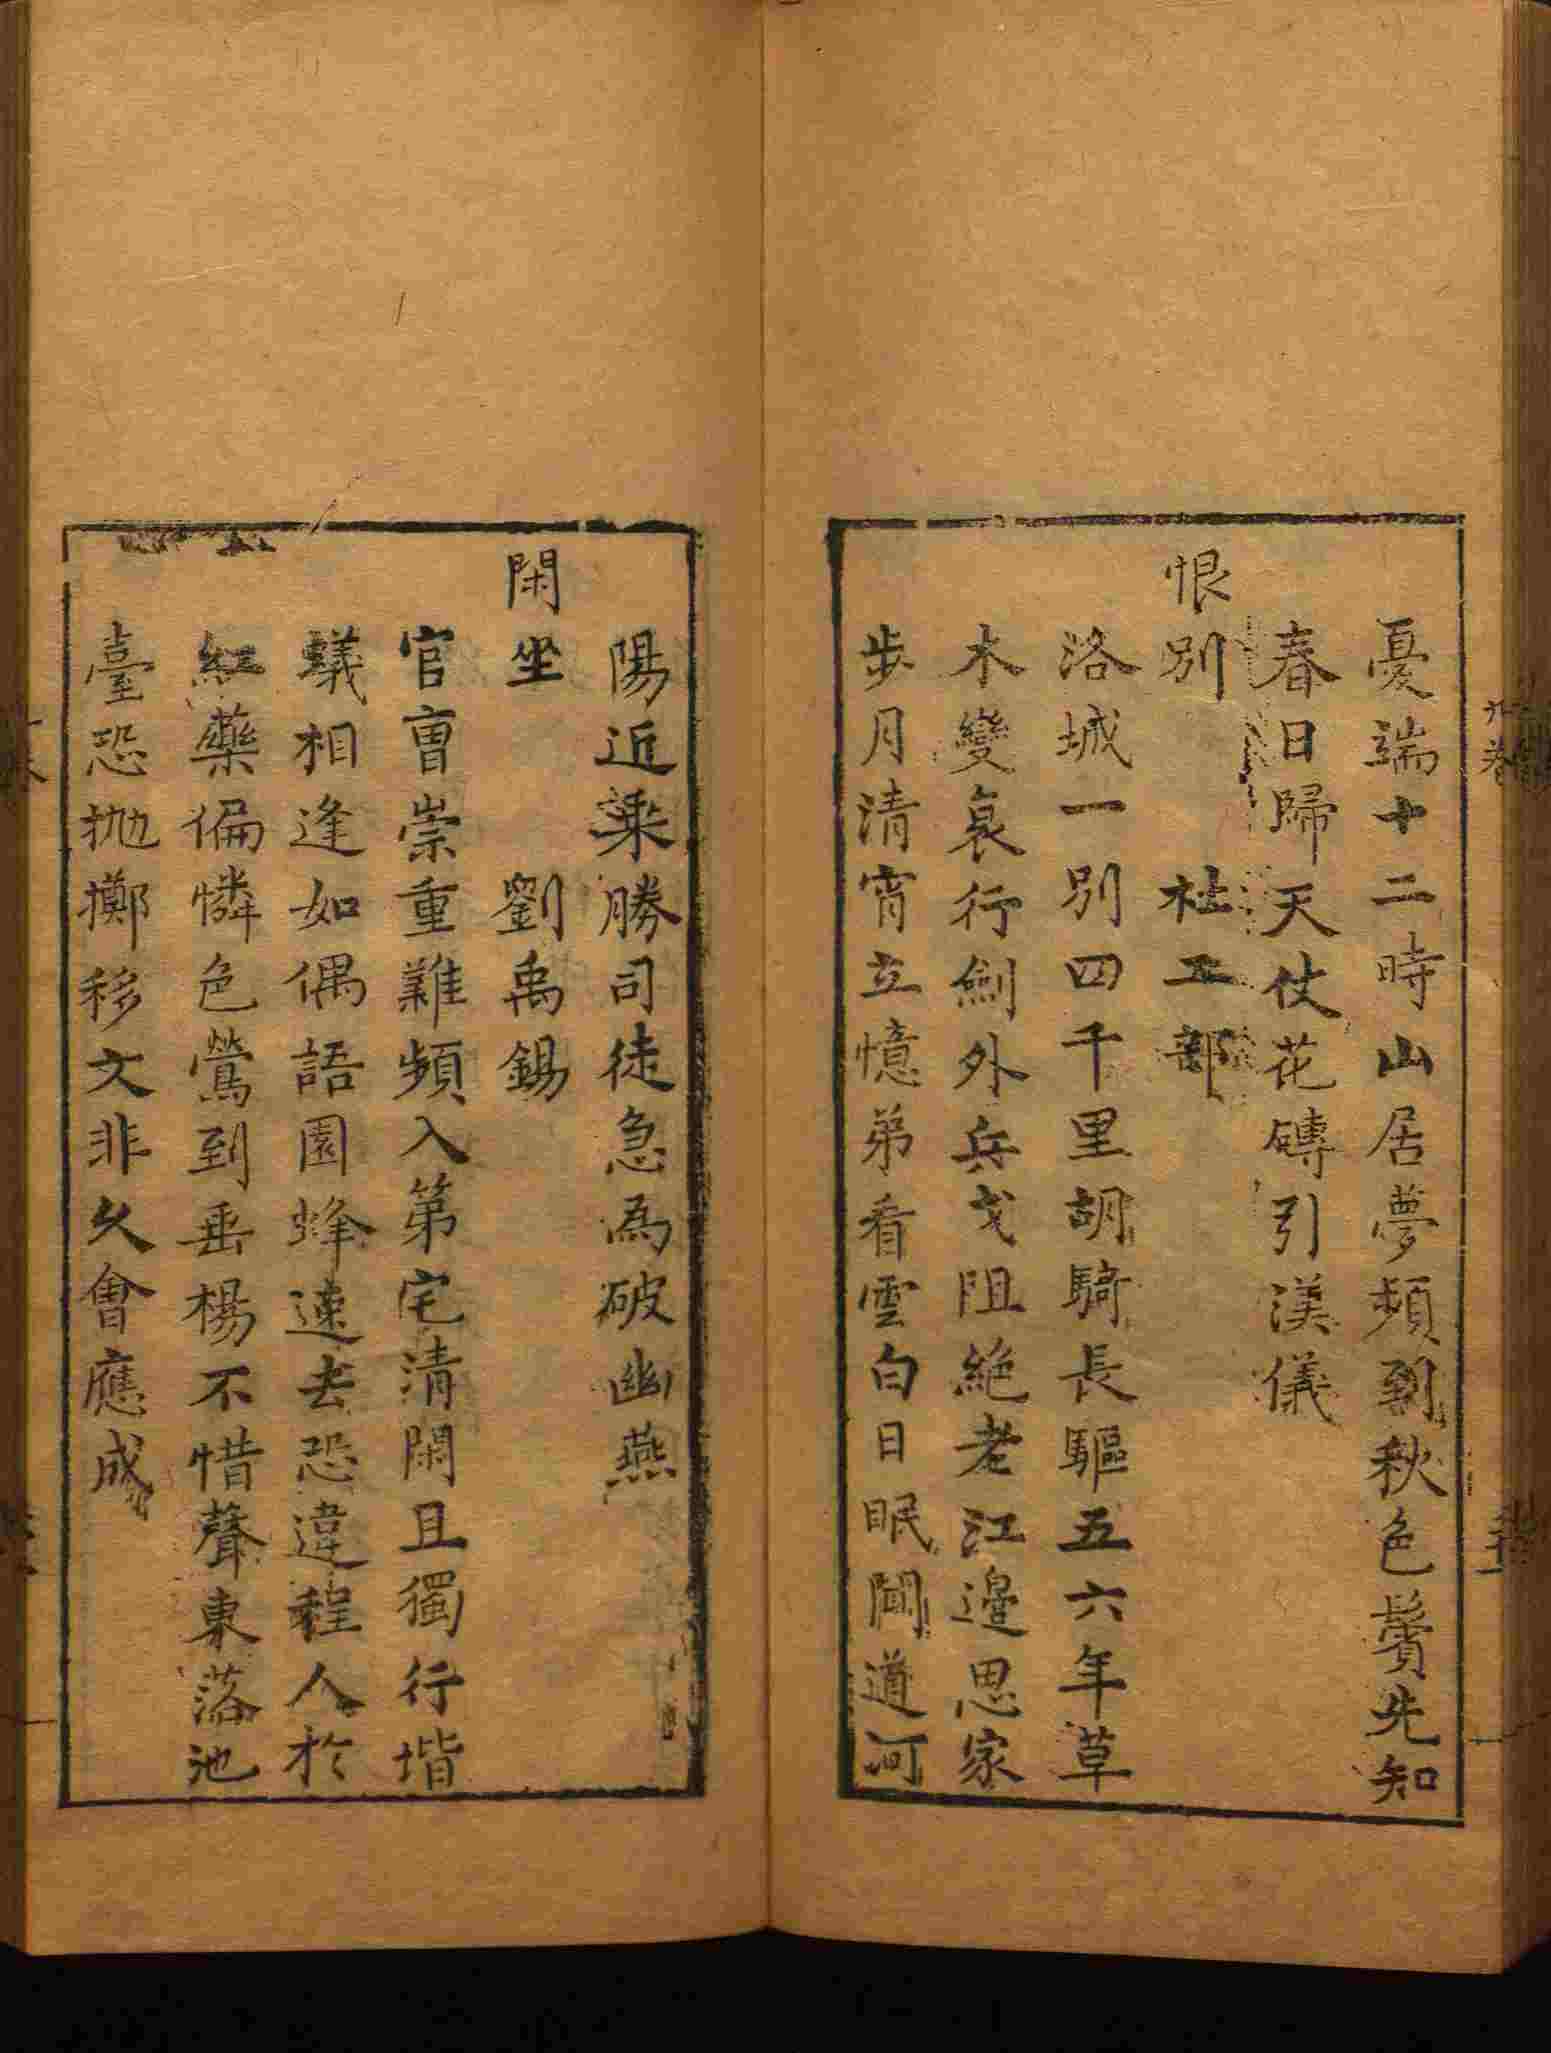 憂端十二時山居夢頻到秋色鬢先知
春日歸天仗花磚引漢儀
恨別　　杜工部
洛城一別四千里胡騎長驅五六年草
木變衰行劍外兵戈阻絶老江邊思家
步月清宵立憶弟看雲白日眠聞道河
陽近乗勝司徒急為破幽燕
閑坐　　劉禹錫
官曹崇重難頻入第宅清閑且獨行堦
蟻相逢如偶語園蜂速去恐違程人於
紅藥偏憐色鶯到垂楊不惜聲東落池
臺恐抛擲移文非久會應成